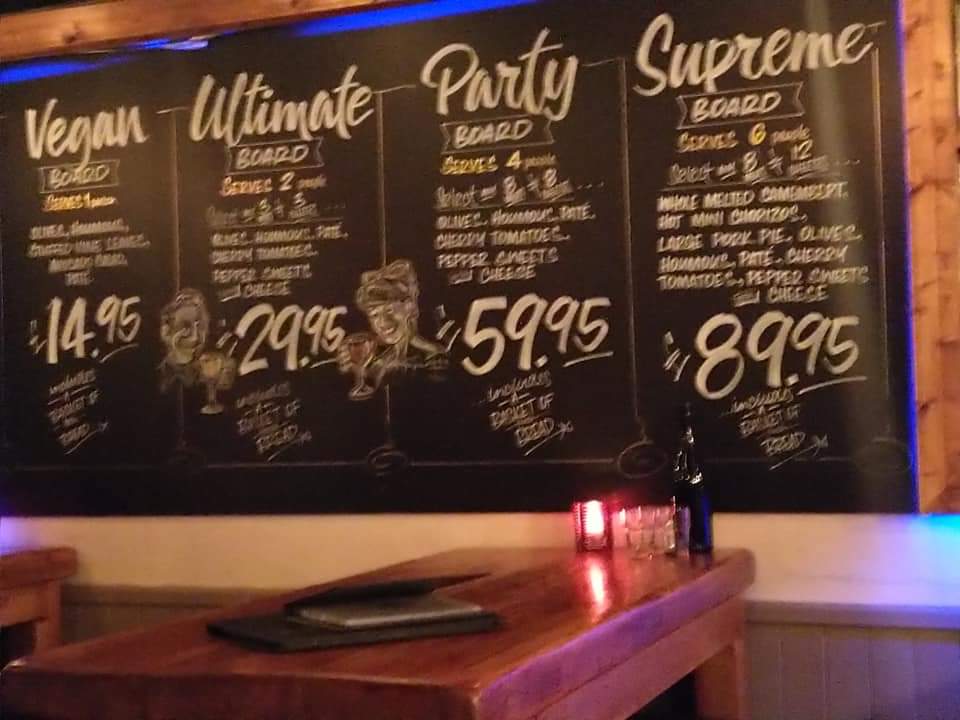 Vegan
BOARD
SERVES 1 person
OLIVES, HOUMOUS,
STUFFED VINE LEAVES,
PATE
£14.95
includes
A
BASKET OF
BREAD
Ultimate
BOARD
SERVES 2 people
Select any 3 & 3
OLIVES, HOUMOUS, PATE,
CHERRY TOMATOES,
PEPPER SWEETS
and CHEESE
£29.95
includes
A
BASKET OF
BREAD
Party
BOARD
SERVES 4 people
Select any 8 & 8
OLIVES, HOUMOUS, PATE,
CHERRY TOMATOES,
PEPPER SWEETS
and CHEESE
£59.95
...includes
A
BASKET OF
BREAD
Supreme
BOARD
SERVES 6 people
Select any 8 & 12
WHOLE MELTED CAMEMBERT,
HOT MINI CHORIZOS,
LARGE PORK PIE, OLIVES
HOUMOUS, PATE, CHERRY
TOMATOES, PEPPER SWEETS
and CHEESE
£89.95
...includes
A
BASKET OF
BREAD